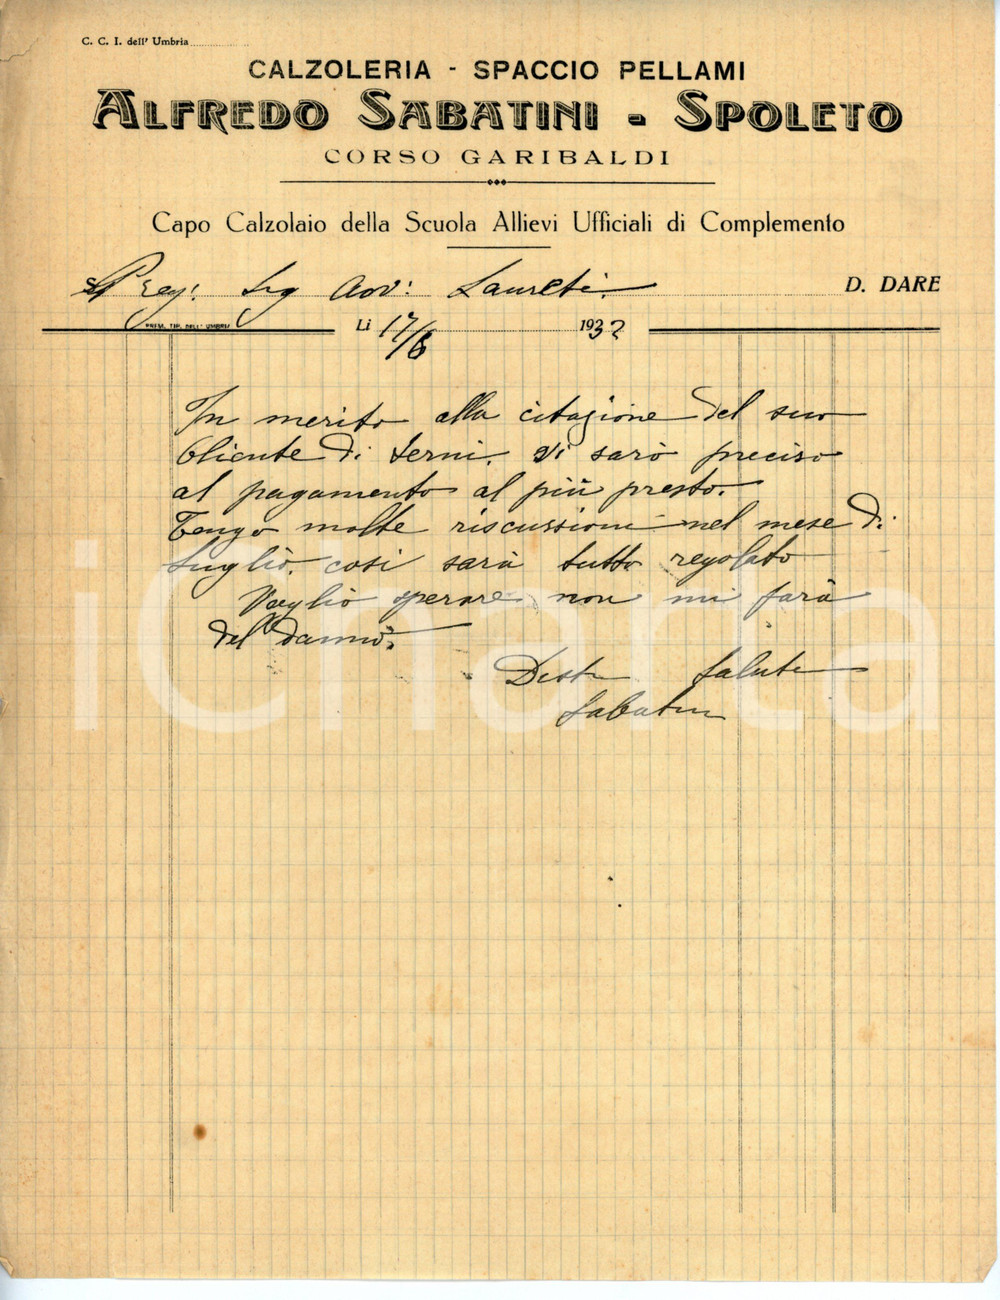 C. C. I. dell' Umbria
CALZOLERIA - SPACCIO PELLAMI
ALFREDO SABATINI - SPOLETO
CORSO GARIBALDI
Capo Calzolaio della Scuola Allievi Ufficiali di Complemento
Preg: Sig Avv: Laureti. D. DARE
PREM. TIP. DELL' UMBRIA
Li 17/6 1932
In merito alla citazione del suo
Cliente di Terni. Vi sarò preciso
al pagamento al più presto.
Tengo molte riscussioni nel mese di
luglio. così sarà tutto regolato
Voglio sperare non mi farà
del danno.
Dist Saluti
Sabatini
iCharta